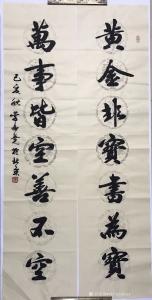 黄金非寶書為寶
萬事皆空善不空